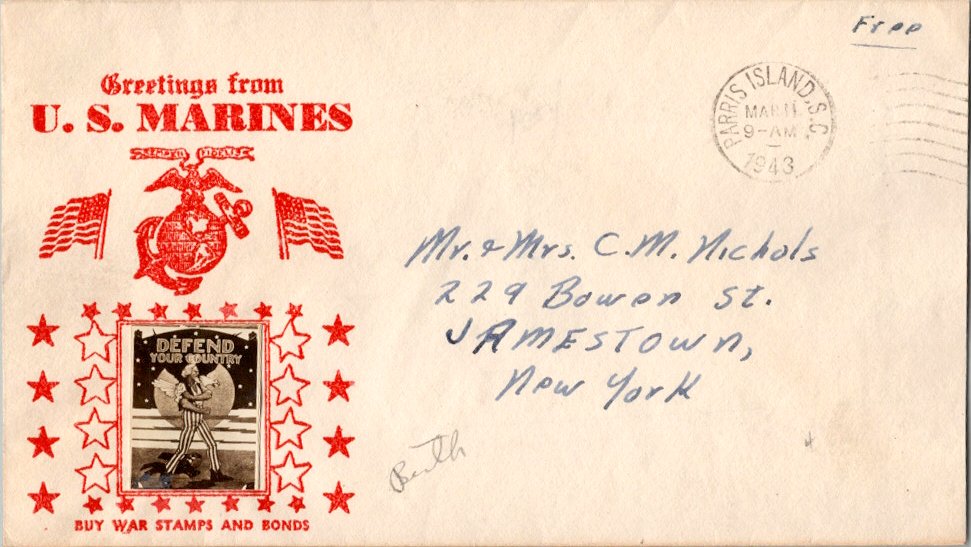 Free
Greetings from
U. S. MARINES
SEMPER FIDELIS
PARRIS ISLAND, S.C.
MAR 11
9-AM
1943
Mr. + Mrs. C.M. Nichols
229 Bowen St.
JAMESTOWN,
New York
DEFEND
YOUR COUNTRY
BUY WAR STAMPS AND BONDS